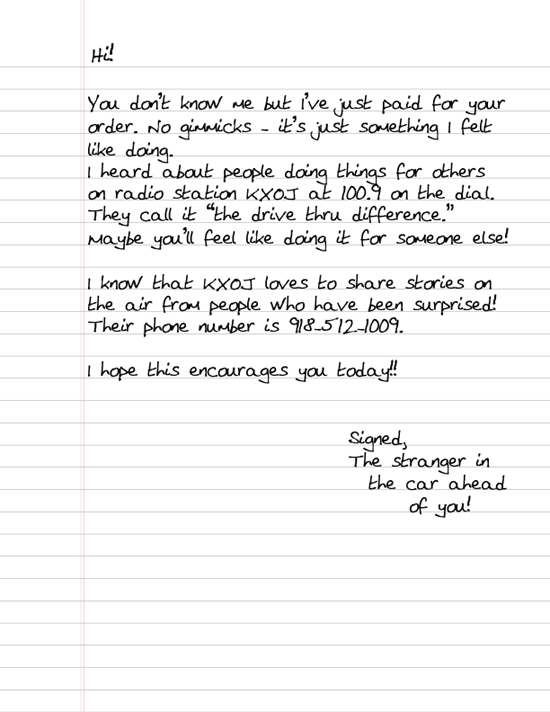 Hi!
You don't know me but I've just paid for your
order. No gimmicks - it's just something I felt
like doing.
I heard about people doing things for others
on radio station KXOJ at 100.9 on the dial.
They call it "the drive thru difference."
Maybe you'll feel like doing it for someone else!
I know that KXOJ loves to share stories on
the air from people who have been surprised!
Their phone number is 918-512-1009.
I hope this encourages you today!!
Signed,
The stranger in
the car ahead
of you!